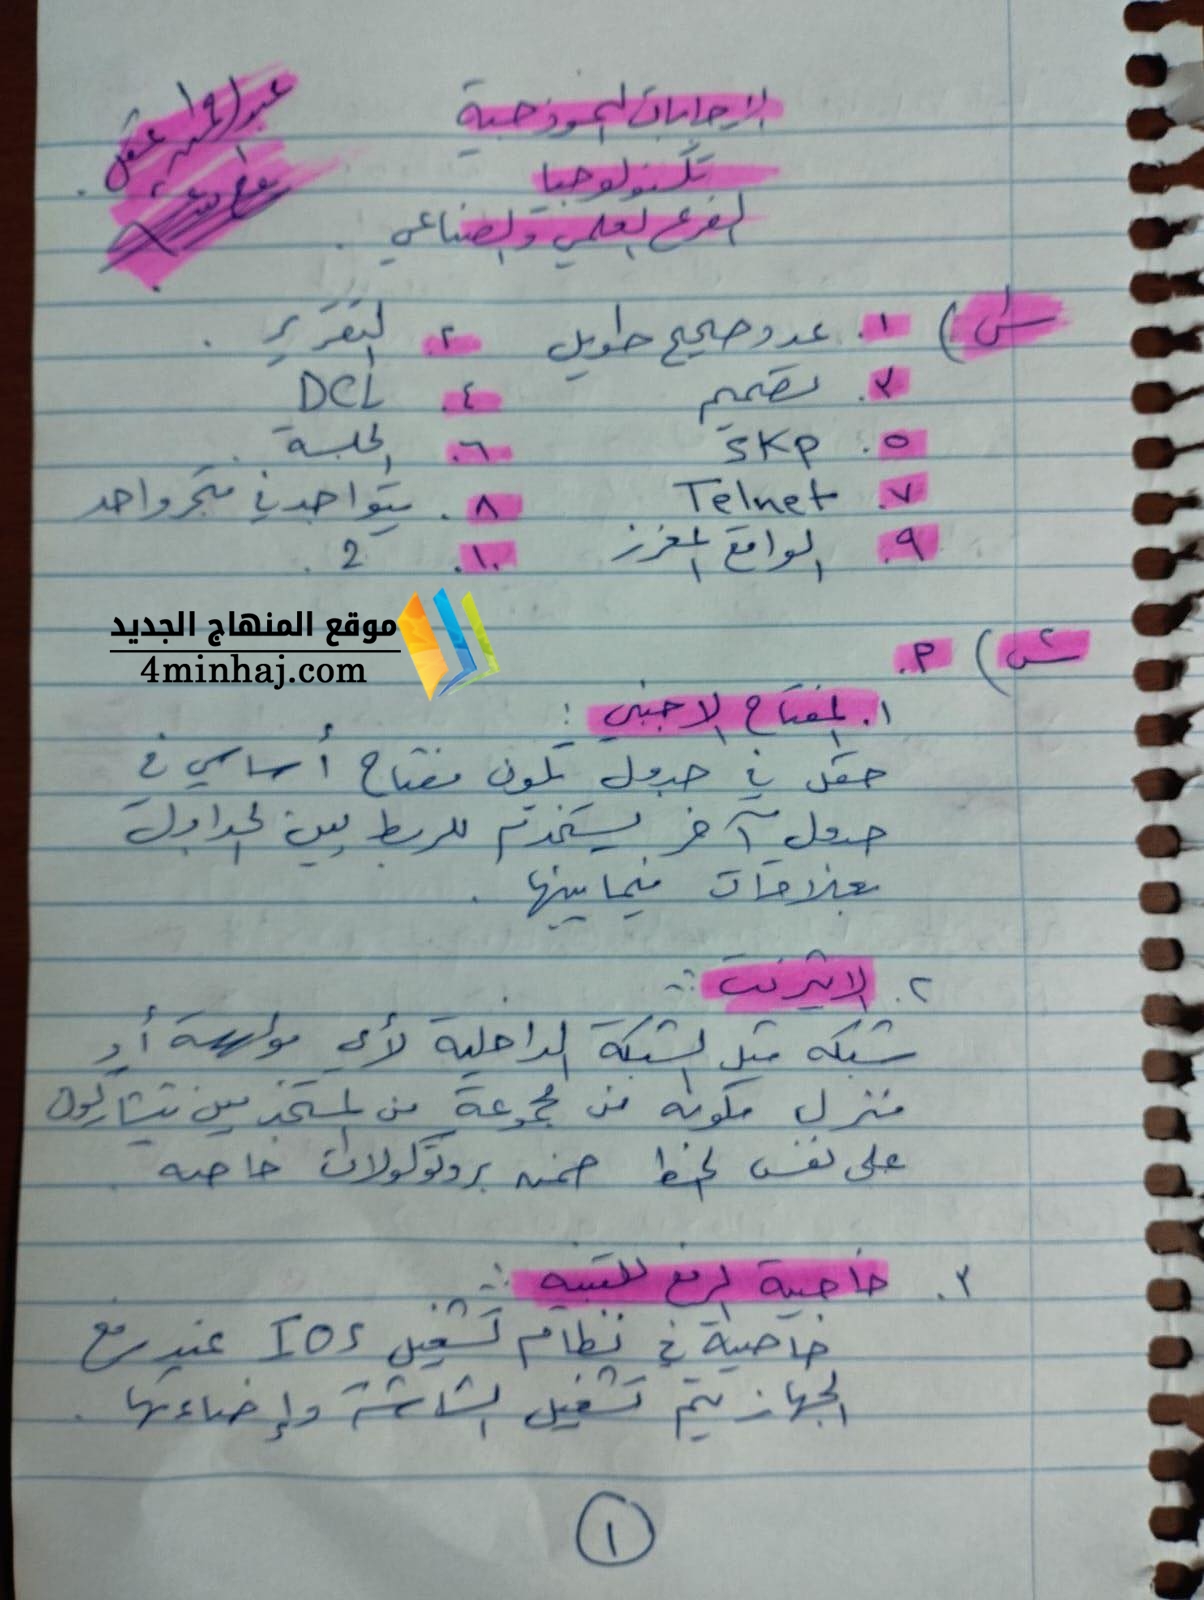 الإجابات النموذجية
تكنولوجيا
الفرع العلمي والصناعي .
س١) ١. عدد صحيح طويل ٢. التقرير .
٣. تصميم ٤. DCL
٥. SKP ٦. الجلسة
٧. Telnet ٨. يتواجد في متجر واحد
٩. الواقع المعزز ١٠. 2 .
موقع المنهاج الجديد
4minhaj.com
س٢) أ.
١. المفتاح الاجنبي :
حقل في جدول يكون مفتاح أساسي في
جدول آخر يستخدم للربط بين الجداول
بعلاقات فيما بينها .
٢. الايثرنت :
شبكة مثل الشبكة الداخلية لأي مؤسسة أو
منزل مكونه من مجموعة من المستخدمين يتشاركون
على نفس الخط ضمن بروتوكولات خاصه .
٣. خاصية الرفع للتنبيه :
خاصية في نظام تشغيل IOS عند رفع
الجهاز يتم تشغيل الشاشة وإضاءتها .
١